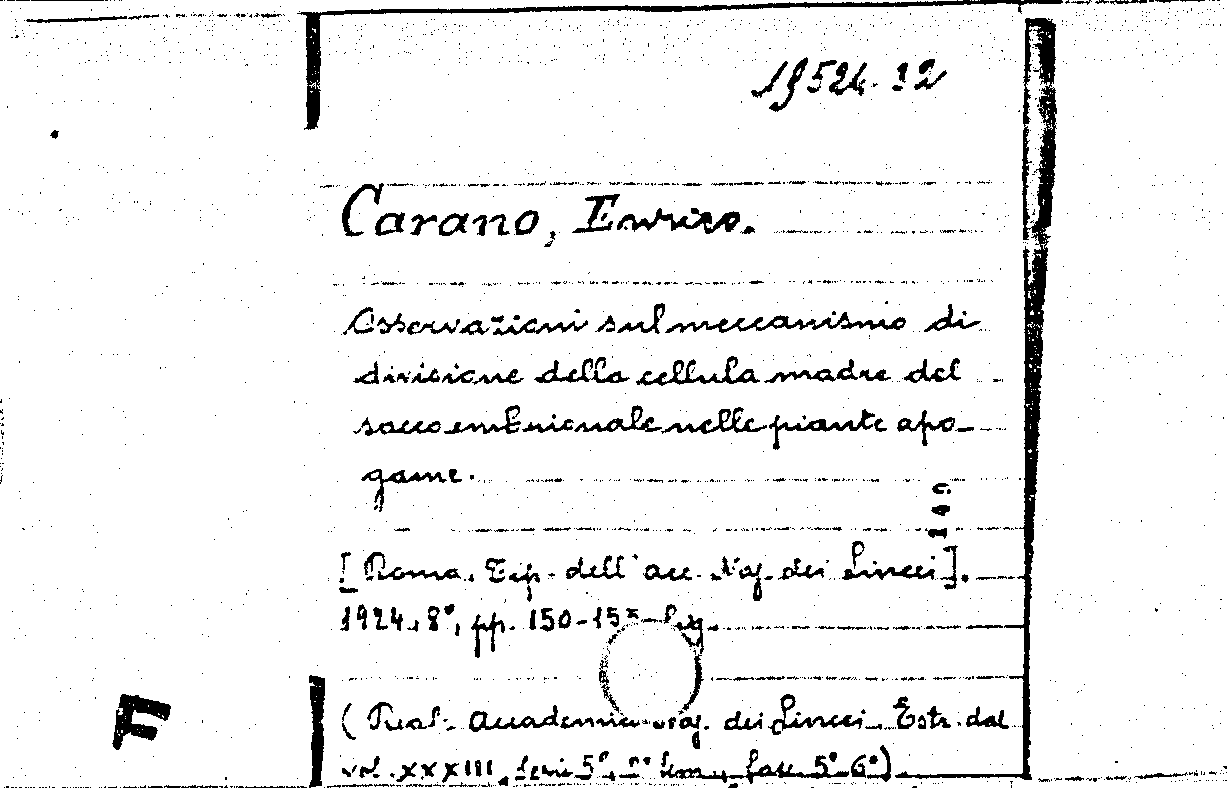 19524.32
Carano, Enrico.
Osservazioni sul meccanismo di
divisione della cellula madre del
sacco embrionale nelle piante apo-
game.
149
[Roma. Tip. dell'acc. Naz. dei Lincei].
1924. 8°, pp. 150-15 fig.
F
(Real. Accademia Naz. dei Lincei. Estr. dal
vol. XXXIII, serie 5ª, 2° sem., fasc. 5°-6°)